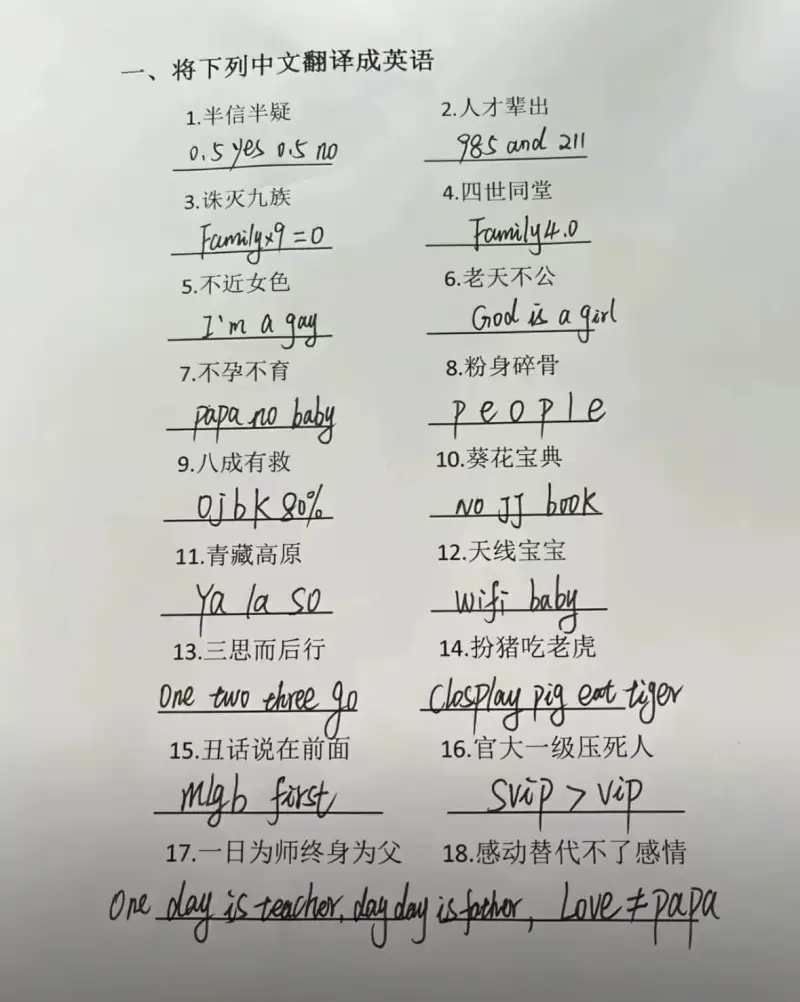 一、将下列中文翻译成英语
1.半信半疑 2.人才辈出
0.5 yes 0.5 no 985 and 211
3.诛灭九族 4.四世同堂
Family×9=0 Family4.0
5.不近女色 6.老天不公
I'm a gay God is a girl
7.不孕不育 8.粉身碎骨
papa no baby p e o p l e
9.八成有救 10.葵花宝典
Ojbk 80% NO JJ book
11.青藏高原 12.天线宝宝
Ya la so wifi baby
13.三思而后行 14.扮猪吃老虎
One two three go Closplay pig eat tiger
15.丑话说在前面 16.官大一级压死人
mlgb first svip > vip
17.一日为师终身为父 18.感动替代不了感情
One day is teacher, day day is father, Love ≠ papa